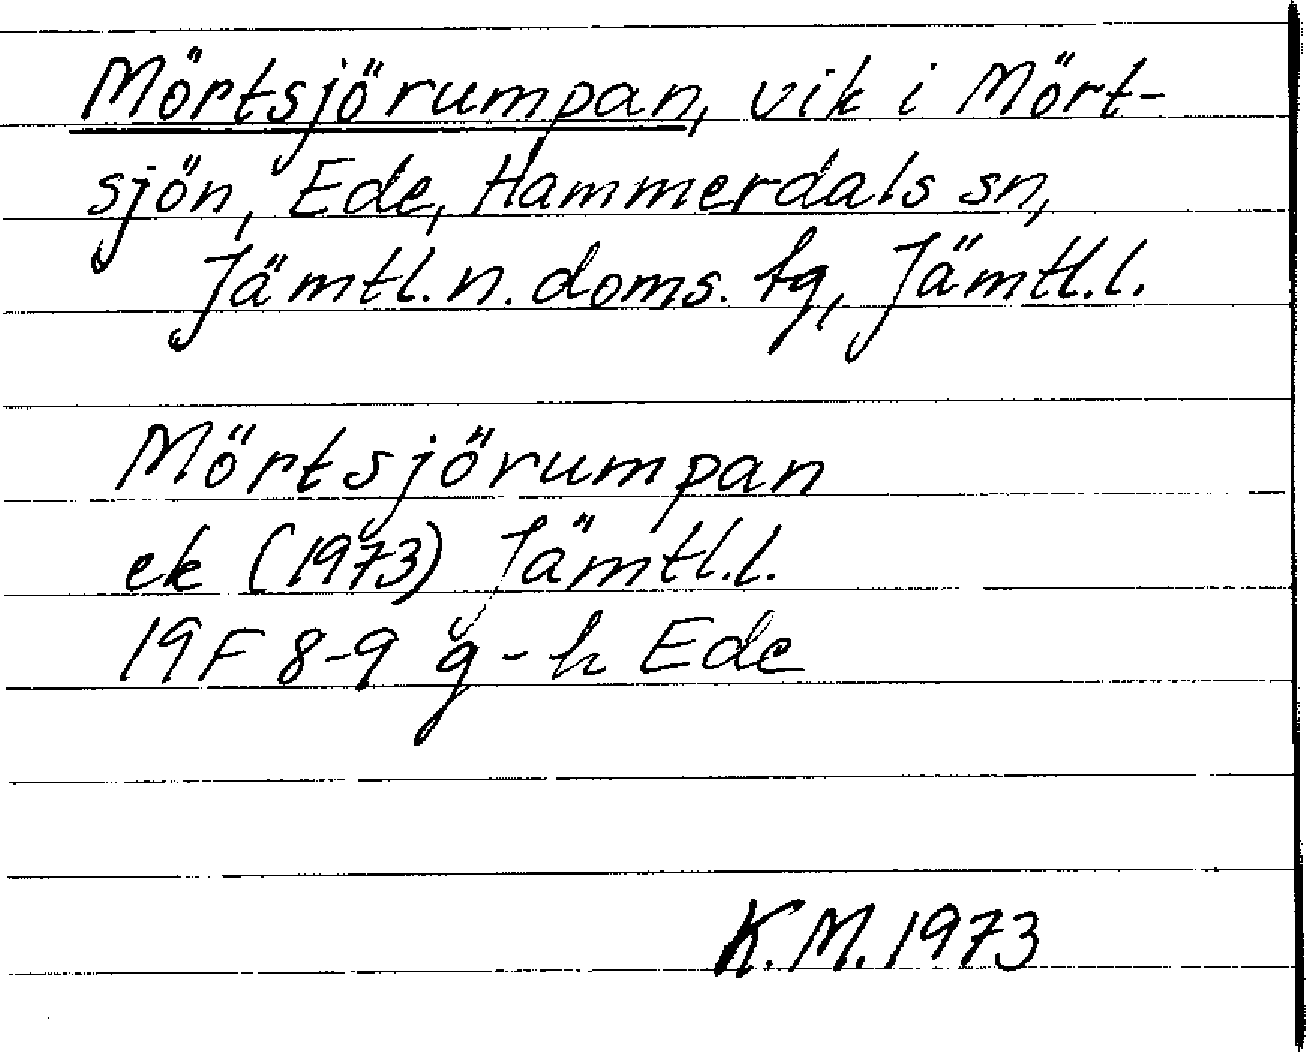 Mörtsjörumpan, vik i Mört-
sjön, Ede, Hammerdals sn,
Jämtl. n. doms. tg, Jämtl.l.
Mörtsjörumpan
ek (1973) Jämtl.l.
19F 8-9 g-h Ede
K.M. 1973